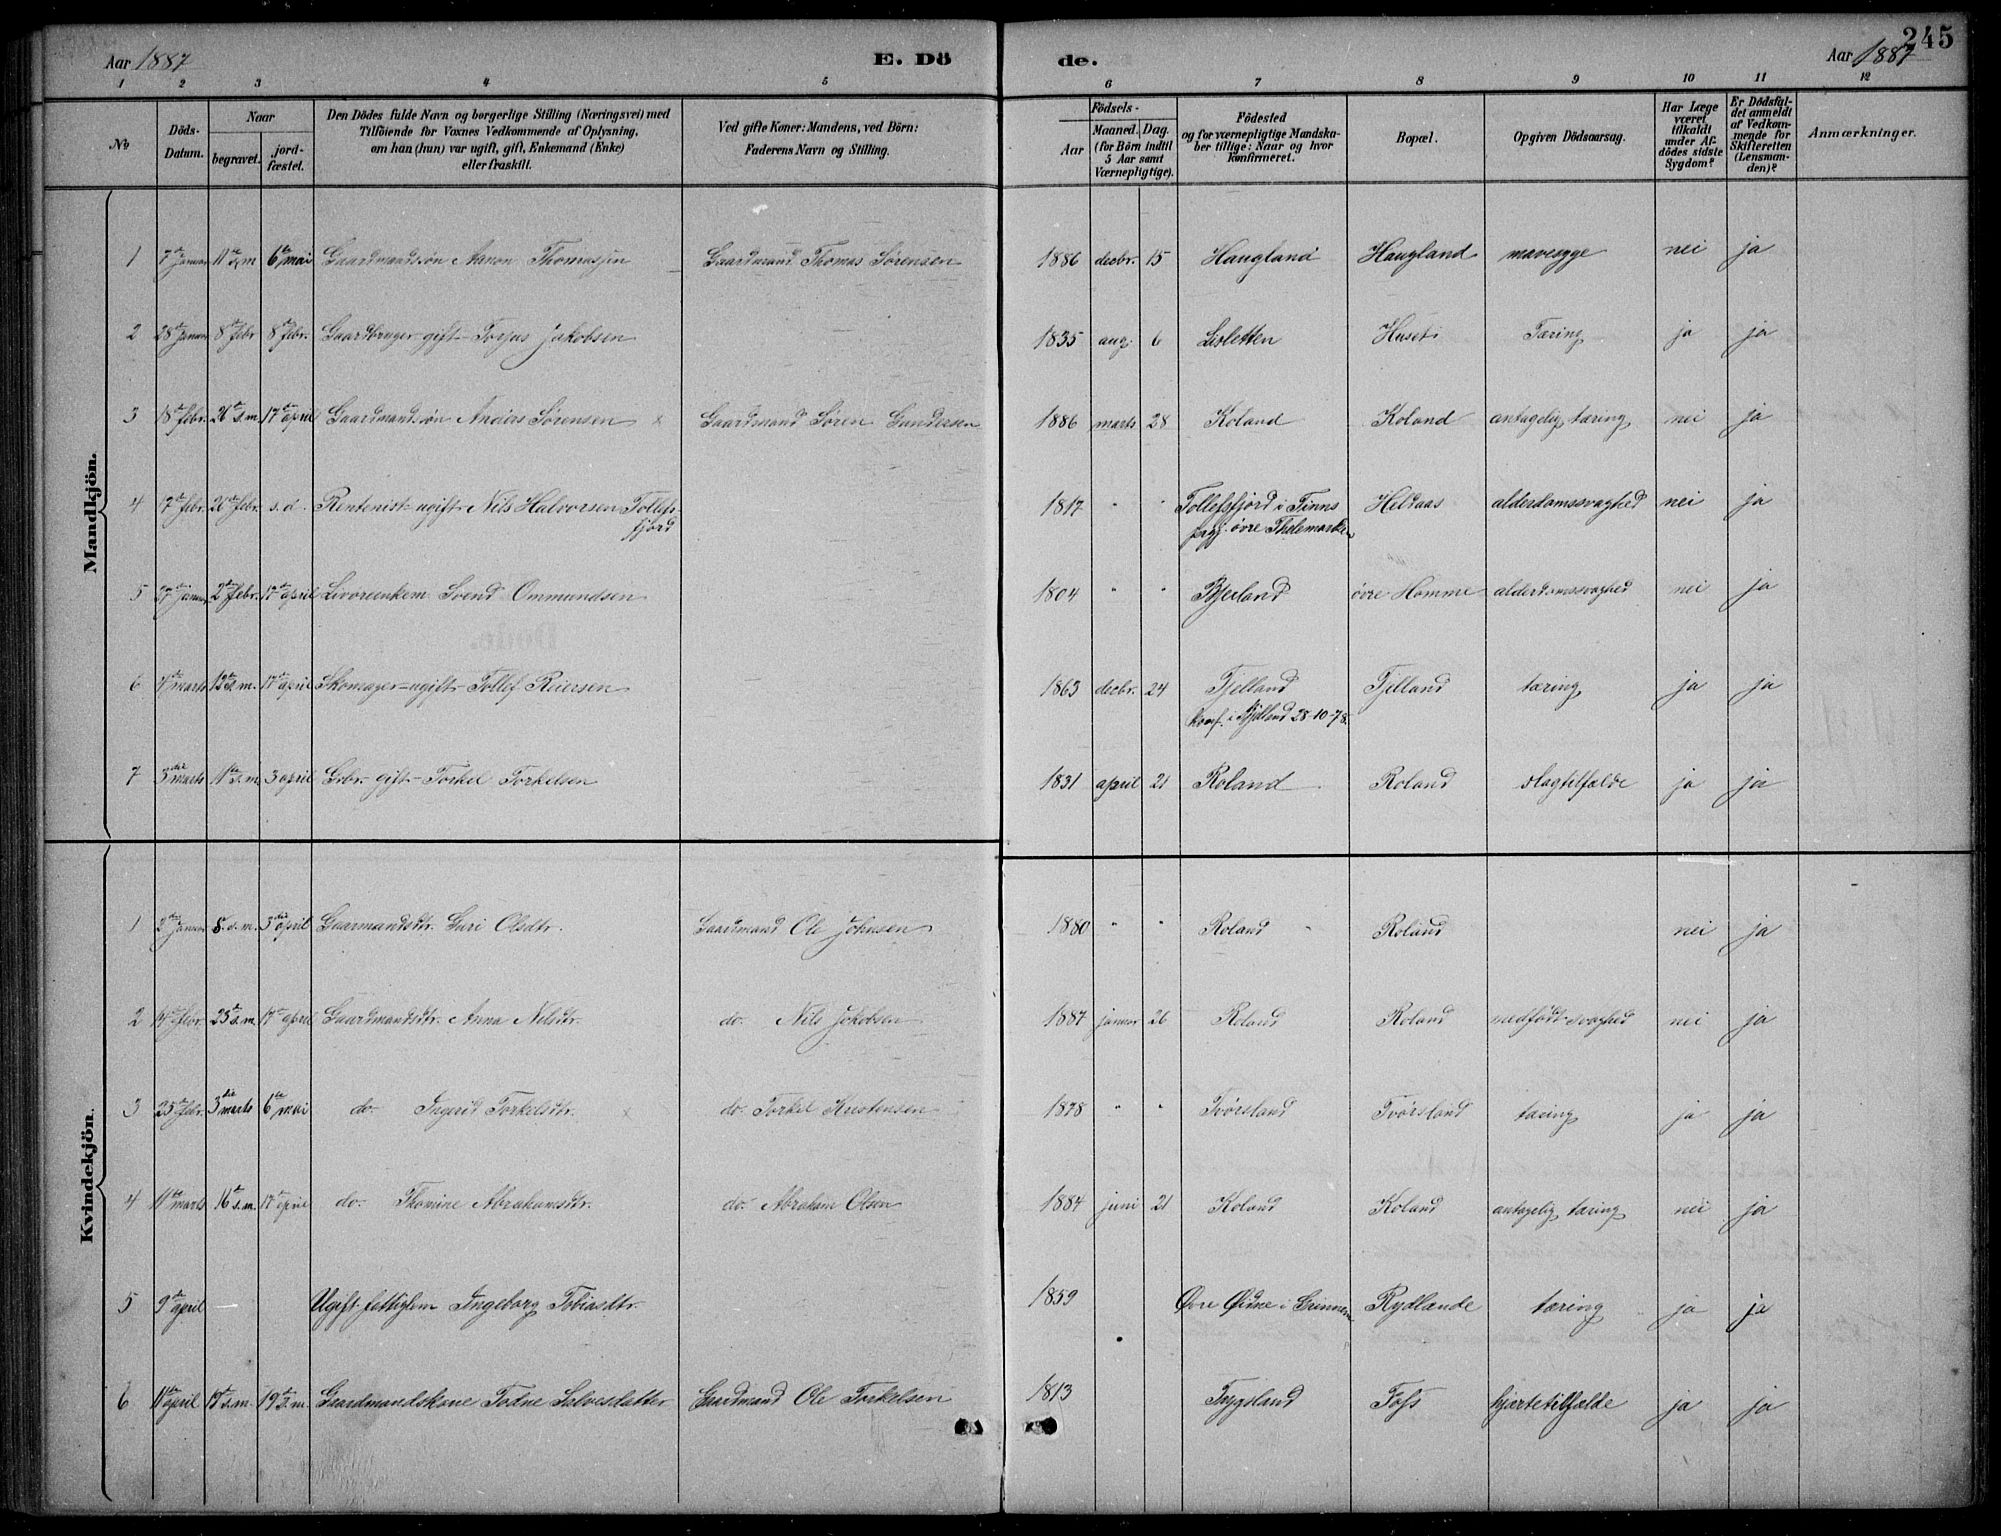 245
Aar 1887 E. Dö de. Aar 1887
1 2 3 4 5 6 7 8 9 10 11 12
No
Döds-Datum.
Naar
begravet.
jord-fæstet.
Den Dödes fulde Navn og borgerlige Stilling (Næringsvei) med
Tilföiende for Voxnes Vedkommende af Oplysning,
om han (hun) var ugift, gift, Enkemand (Enke)
eller fraskilt.
Ved gifte Koner: Mandens, ved Börn:
Faderens Navn og Stilling.
Födsels-
Aar
Maaned. Dag.
(for Börn indtil
5 Aar samt
Værnepligtige).
Födested
og for værnepligtige Mandska-
ber tillige: Naar og hvor
konfirmeret.
Bopæl.
Opgiven Dödsaarsag.
Har Læge
været
tilkaldt
under Af-
dödes sidste
Sygdom?
Er Dödsfal-
det anmeldt
af Vedkom-
mende for
Skifteretten
(Lensman-
den)?
Anmærkninger.
Mandkjön.
1 7de Januar 11te s.m. 6te mai Gaardmandssøn Aanon Thomassen Gaardmand Thomas Sørensen 1886 decbr. 15 Haugland Haugland mavesyge nei ja
2 28de Januar 8de febr 8de febr. Gaardbruger gift Torjus Jakobsen 1835 aug. 6 Lisletten Huseti Tæring ja ja
3 18de febr. 26de s.m. 17de april Gaardmandssøn Anders Sørensen x Gaardmand Søren Gundersen 1886 marts 28 Koland Koland antagelig tæring nei ja
4 17de febr. 26de febr. s. d. Rentenist ugift Nils Halvorsen Tollefs-
fjord 1817 " " Tollefsfjord i Tinns
prgj. øvre Thelemarken Heldaas alderdomssvaghed nei ja
5 27de januar 2den febr. 17de april Livøreenkem Svend Ommundsen 1804 " " Bjelland øvre Homme alderdomssvaghed nei ja
6 4de marts 12te s.m. 17de april Skomager ugift Tollef Reiersen 1863 decbr. 24 Tjelland
konf. i Bjelland 28-10-78. Tjelland tæring ja ja
7 3die marts 11te s.m. 3 april Grbr. gift Torkel Torkelsen 1831 april 21 Roland Roland slagtilfælde ja ja
Kvindekjön.
1 2den Januar 8. s.m. 3die april Gaarmandsdtr. Guri Olsdtr. Gaardmand Ole Johnsen 1880 " " Roland " Roland nei ja
2 14de febr. 23de s.m. 17de april Gaardmandsdtr. Anna Nilsdtr. do. Nils Jakobsen 1887 januar 26 Roland Roland medfødt svaghed nei ja
3 25de febr. 3die marts 6te mai do. Ingerid Torkelsdtr. x do. Torkel Kristensen 1878 " " Tvørsland Tvørsland tæring ja ja
4 11te marts 16de s.m. 17de april do. Thomine Abrahamsdtr. do. Abraham Olsen 1884 juni 21 Koland Koland antagelig tæring nei ja
5 9de april Ugift fattiglem Ingeborg Tobiasdtr. 1859 Øvre Øidne i Grinnem Rydlande tæring ja ja
6 11te april 19de s.m. 19de s.m. Gaardmandskone Todne Salvesdatter Gaardmand Ole Torkelsen 1813 Trygsland Foss hjertetilfælde ja ja